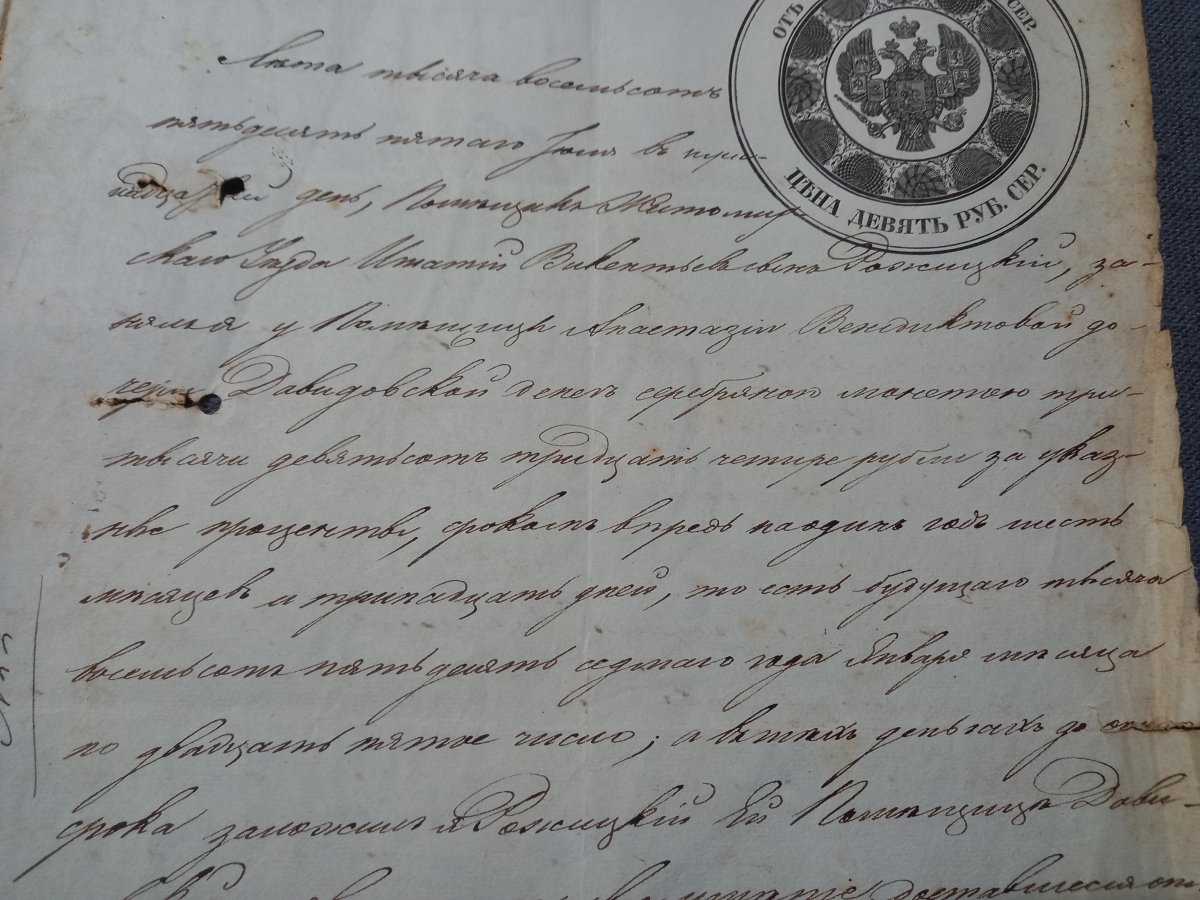 ОТЪ
СЕР.
ЦѢНА ДЕВЯТЬ РУБ. СЕР.
Лѣта тысяча восемьсотъ
пятьдесятъ пятаго Іюля въ три-
надцатый день, Помѣщикъ Житомир
скаго Уѣзда Игнатій Викентьевъ сынъ Рожицкій, за-
нялъ я у Помѣщицы Анастазіи Венедиктовой до-
чери Давидовской денегъ серебряною монетою три-
тысячи девятьсотъ тридцать четире рубли за указ-
ные проценты, срокомъ впредь на одинъ годъ шесть
мѣсяцевъ и тринадцать дней, то есть будущаго тысяча
восемьсотъ пятьдесятъ седмаго года Января мѣсяца
по двадцать пятое число; а въ тѣхъ деньгахъ до
срока заложилъ я Рожицкій Ей Помѣщицѣ Дави-